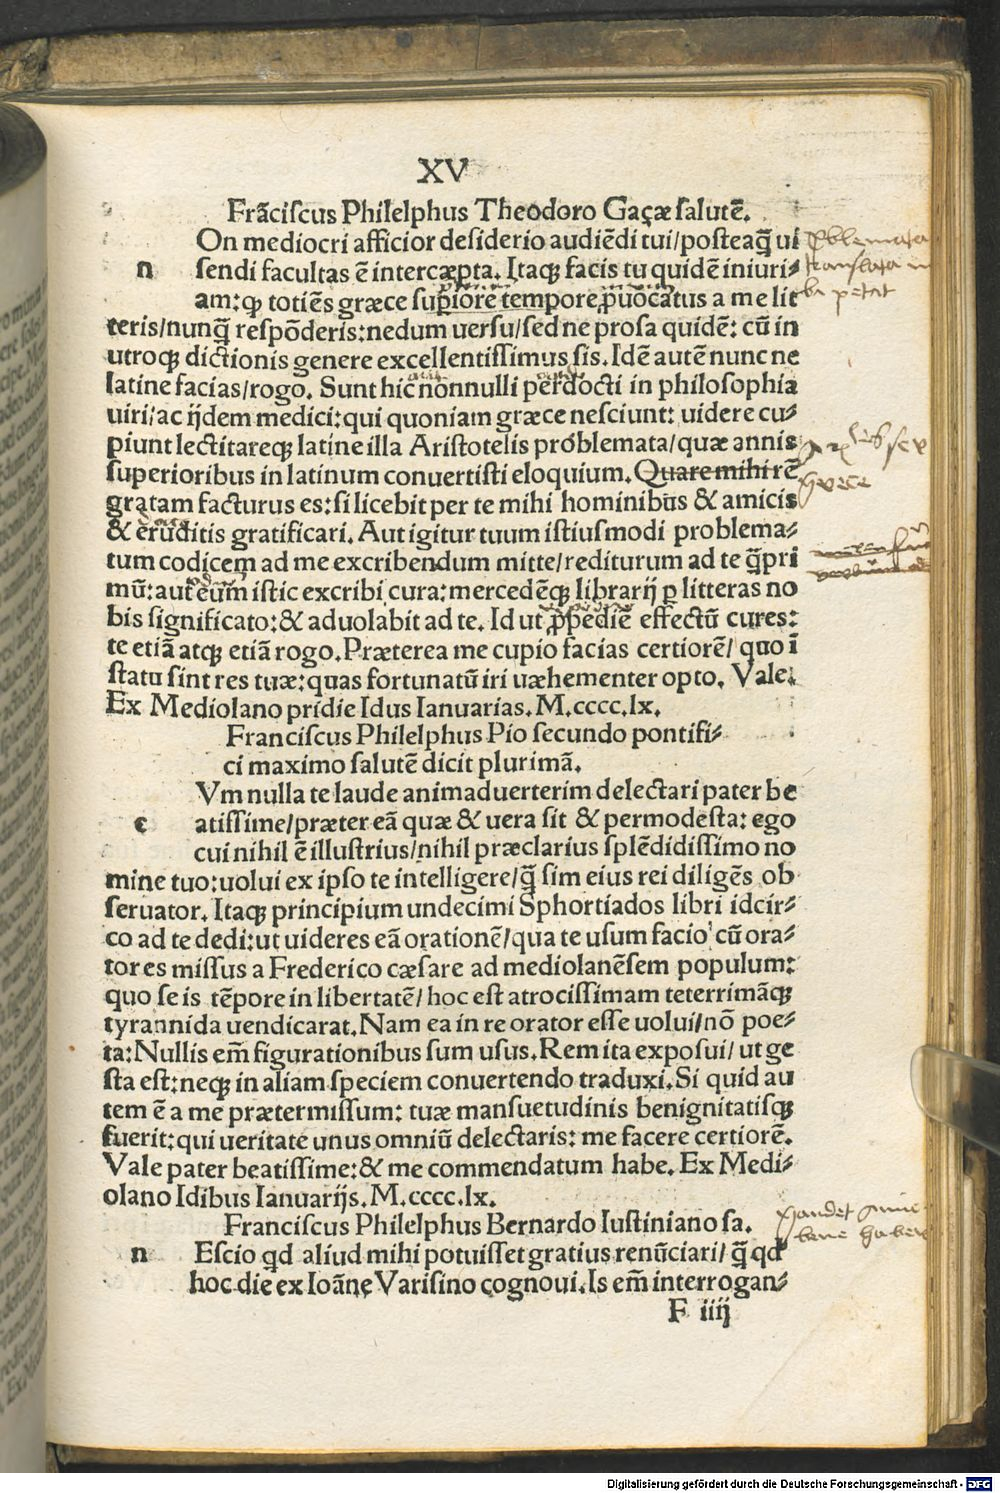 XV
Frãciſcus Philelphus Theodoro Gaçæ ſalutẽ.
On mediocri afficior deſiderio audiẽdi tui/poſteaq̃ ui
n ſendi facultas ẽ intercæpta. Itaqꝫ facis tu quidẽ iniuri⸗
am:ꝙ totiẽs græce ſuꝑiore tempore ꝓuocatus a me lit
teris/nunq̃ reſpõderis:nedum uerſu/ſed ne proſa quidẽ: cũ in
utroqꝫ dictionis genere excellentiſſimus ſis. Idẽ autẽ nunc ne
latine facias/rogo. Sunt hic nonnulli perdocti in philoſophia
uiri/ac ijdem medici:qui quoniam græce neſciunt: uidere cu⸗
piunt lectitareqꝫ latine illa Ariſtotelis problemata/quæ annis
ſuperioribus in latinum conuertiſti eloquium. Quare mihi rẽ
gratam facturus es:ſi licebit per te mihi hominibus & amicis
& eruditis gratificari. Aut igitur tuum iſtiuſmodi problema⸗
tum codicem ad me excribendum mitte/rediturum ad te q̃pri
mũ:aut eum iſtic excribi cura:mercedẽqꝫ librarij ꝑ litteras no
bis ſignificato:& aduolabit ad te. Id ut ꝓpediẽ effectũ cures:
te etiã atqꝫ etiã rogo. Præterea me cupio facias certiorẽ/ quo ĩ
ſtatu ſint res tuæ:quas fortunatũ iri uæhementer opto. Vale.
Ex Mediolano pridie Idus Ianuarias. M.cccc.lx.
Franciſcus Philelphus Pio ſecundo pontifi⸗
ci maximo ſalutẽ dicit plurimã.
Vm nulla te laude animaduerterim delectari pater be
c atiſſime/præter eã quæ & uera ſit & permodeſta: ego
cui nihil ẽ illuſtrius/nihil præclarius ſplẽdidiſſimo no
mine tuo:uolui ex ipſo te intelligere/q̃ ſim eius rei diligẽs ob
ſeruator. Itaqꝫ principium undecimi Sphortiados libri idcir⸗
co ad te dedi:ut uideres eã orationẽ/qua te uſum facio cũ ora⸗
tores miſſus a Frederico cæſare ad mediolanẽſem populum:
quo ſe is tẽpore in libertatẽ/ hoc eſt atrociſſimam teterrimãqꝫ
tyrannida uendicarat. Nam ea in re orator eſſe uolui/nõ poe⸗
ta:Nullis em̃ figurationibus ſum uſus. Rem ita expoſui/ ut ge
ſta eſt:neqꝫ in aliam ſpeciem conuertendo traduxi. Si quid au
tem ẽ a me prætermiſſum: tuæ manſuetudinis benignitatiſqꝫ
fuerit:qui ueritate unus omniũ delectaris: me facere certiorẽ.
Vale pater beatiſſime:& me commendatum habe. Ex Medi⸗
olano Idibus Ianuarijs. M.cccc.lx.
Franciſcus Philelphus Bernardo Iuſtiniano ſa.
n Eſcio qd aliud mihi potuiſſet gratius renũciari/ q̃ qd
hoc die ex Ioãne Variſino cognoui. Is em̃ interrogan⸗
F iiij
translata
petat
bene habere
Digitalisierung gefördert durch die Deutsche Forschungsgemeinschaft - DFG